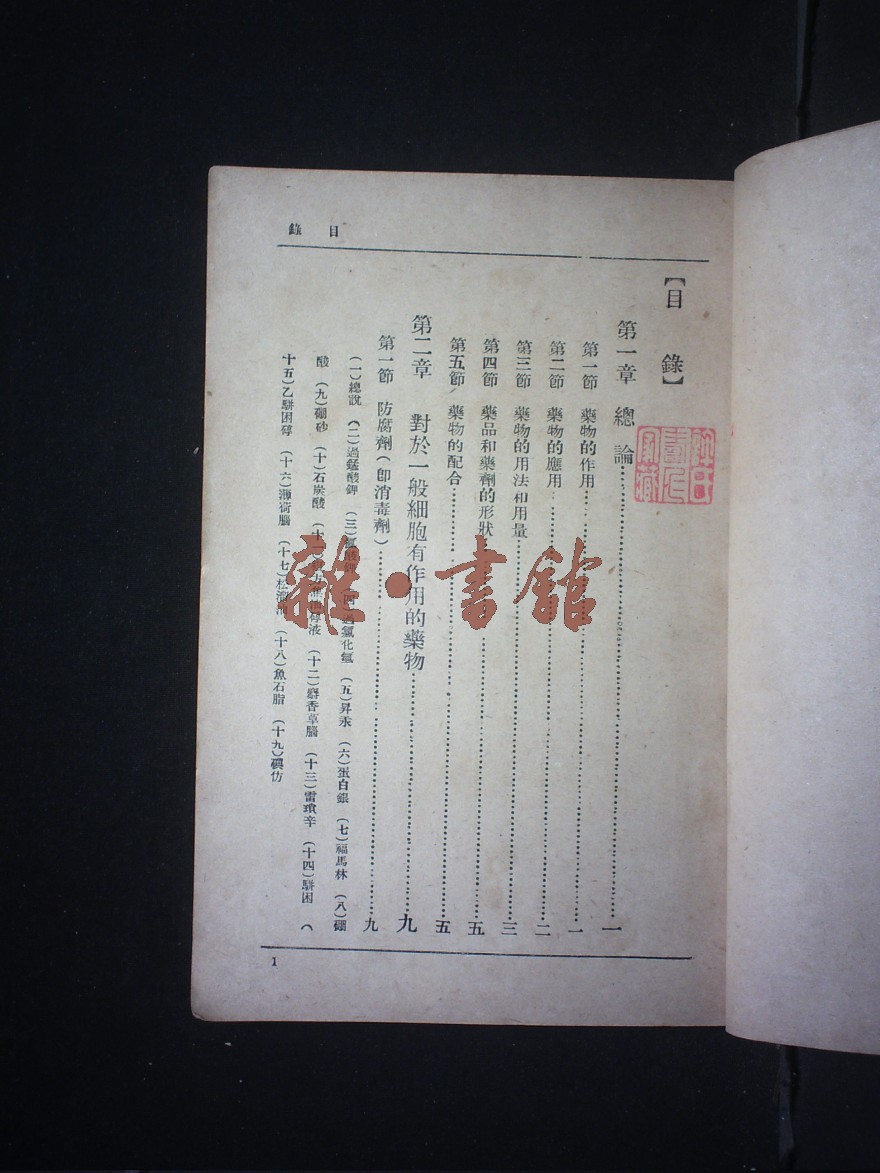 目錄
【目 錄】
第一章 總論……一
第一節 藥物的作用……一
第二節 藥物的應用……二
第三節 藥物的用法和用量……三
第四節 藥品和藥劑的形狀……五
第五節 藥物的配合……五
第二章 對於一般細胞有作用的藥物……九
第一節 防腐劑（卽消毒劑）……九
（一）總說 （二）過錳酸鉀 （三） 過氯化氫 （五）昇汞 （六）蛋白銀 （七）福馬林 （八）硼
酸 （九）硼砂 （十）石炭酸 （十 液 （十二）麝香草腦 （十三）雷瑣辛 （十四）駢困 （
十五）乙駢困醇 （十六）薄荷腦 （十七）松溜油 （十八）魚石脂 （十九）碘仿
1
雜·書館